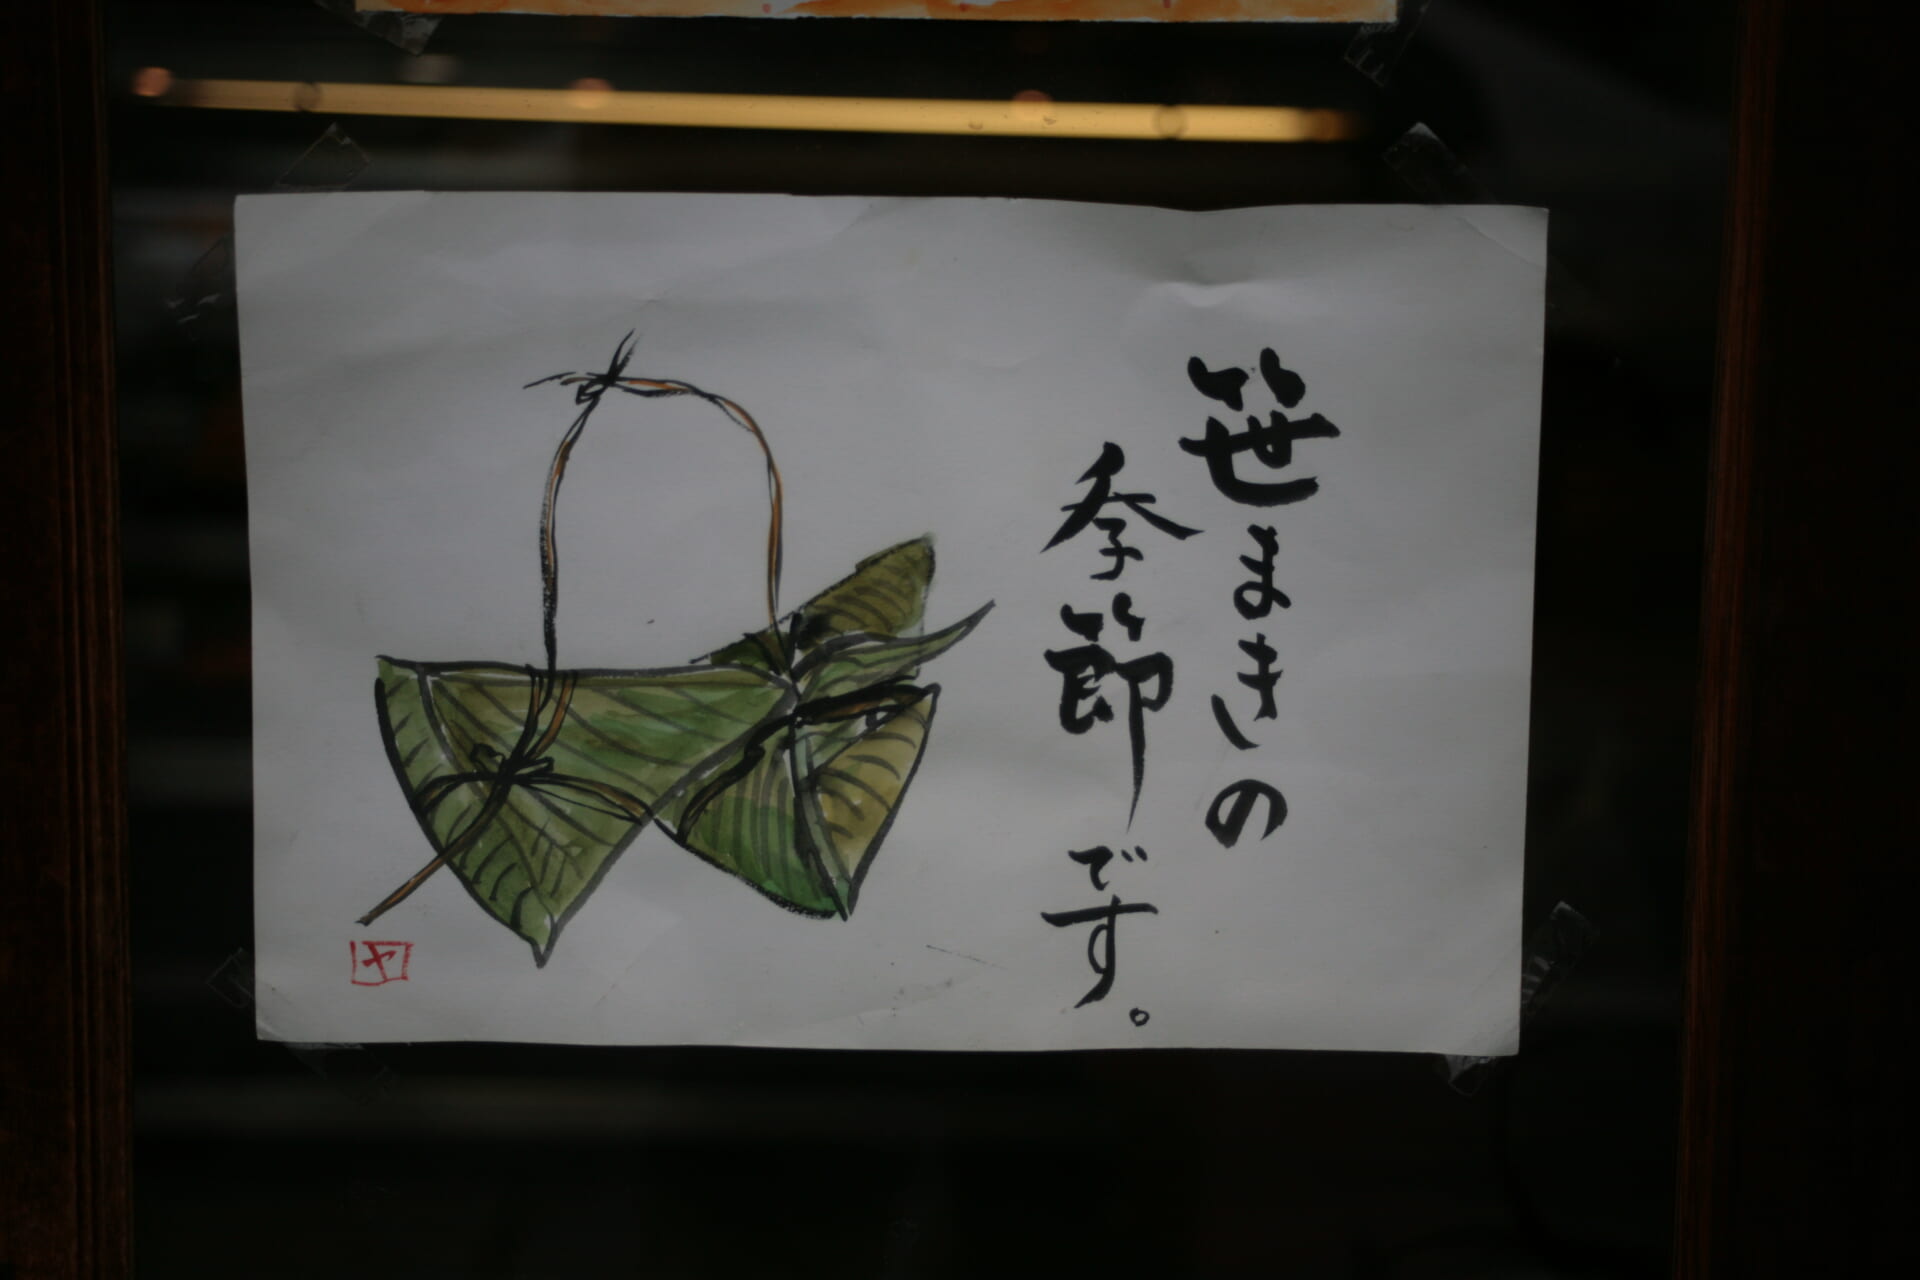 笹まきの
季節です。
ヤ